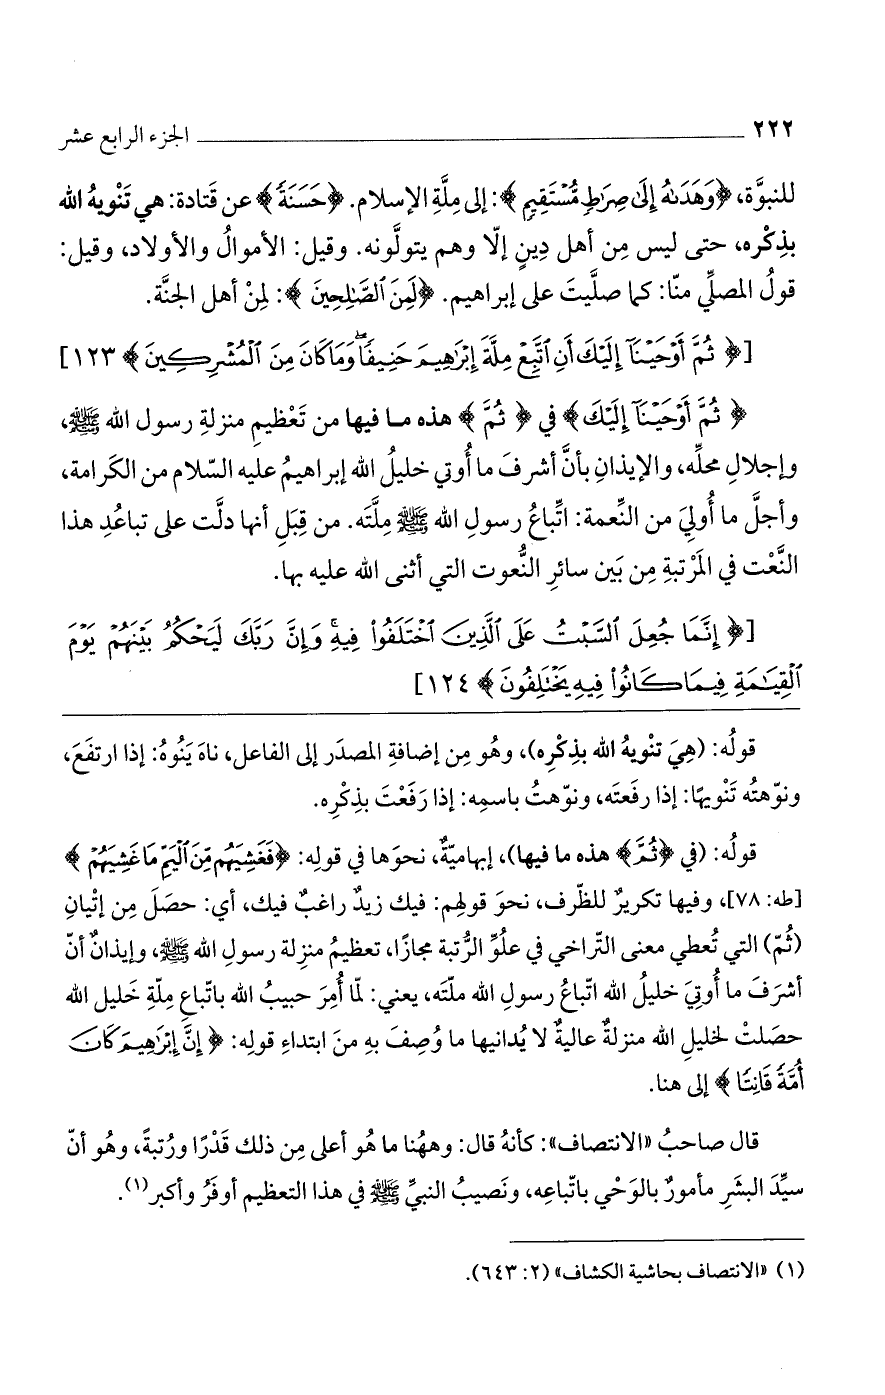 ٢٢٢ الجزء الرابع عشر
للنبوَّة، ﴿وَهَدَىٰهُ إِلَىٰ صِرَٰطٍ مُّسْتَقِيمٍ﴾: إلى مِلَّةِ الإسلام. ﴿حَسَنَةً﴾ عن قَتادة: هي تَنْويهُ الله
بذِكْره، حتى ليس مِن أهل دِينٍ إلّا وهم يتولَّونه. وقيل: الأموالُ والأولاد، وقيل:
قولُ المصلِّي منّا: كما صلَّيتَ على إبراهيم. ﴿لَمِنَ ٱلصَّٰلِحِينَ﴾: لمِنْ أهل الجنَّة.
[﴿ثُمَّ أَوْحَيْنَآ إِلَيْكَ أَنِ ٱتَّبِعْ مِلَّةَ إِبْرَٰهِيمَ حَنِيفًا ۖ وَمَا كَانَ مِنَ ٱلْمُشْرِكِينَ﴾ ١٢٣]
﴿ثُمَّ أَوْحَيْنَآ إِلَيْكَ﴾ في ﴿ثُمَّ﴾ هذه مـا فيها من تَعْظيمِ منزلةِ رسول الله ﷺ،
وإجلالِ محلِّه، والإيذانِ بأنَّ أشرفَ ما أُوتي خليلُ الله إبراهيمُ عليه السّلام من الكَرامة،
وأجلَّ ما أُوليَ من النِّعمة: اتِّباعُ رسولِ الله ﷺ مِلَّتَه. من قِبَلِ أنها دلَّت على تباعُدِ هذا
النَّعْت في المَرْتبةِ مِن بَين سائرِ النُّعوت التي أثنى الله عليه بها.
[﴿إِنَّمَا جُعِلَ ٱلسَّبْتُ عَلَى ٱلَّذِينَ ٱخْتَلَفُوا۟ فِيهِ ۚ وَإِنَّ رَبَّكَ لَيَحْكُمُ بَيْنَهُمْ يَوْمَ
ٱلْقِيَٰمَةِ فِيمَا كَانُوا۟ فِيهِ يَخْتَلِفُونَ﴾ ١٢٤]
قولُه: (هِيَ تنْويهُ الله بذِكْرِه)، وهُو مِن إضافةِ المصدَر إلى الفاعل، ناهَ يَنُوهُ: إذا ارتفَعَ،
ونوّهتُه تَنْويهًا: إذا رفَعتَه، ونوّهتُ باسمِه: إذا رَفَعْتَ بذِكْرِه.
قولُه: (في ﴿ثُمَّ﴾ هذه ما فيها)، إبهاميّةٌ، نحوَها في قولِه: ﴿فَغَشِيَهُم مِّنَ ٱلْيَمِّ مَا غَشِيَهُمْ﴾
[طه: ٧٨]، وفيها تكريرٌ للظّرف، نحوَ قولِهم: فيك زيدٌ راغبٌ فيك، أي: حصَلَ مِن إتْيانِ
(ثُمّ) التي تُعطي معنى التّراخي في علُوِّ الرُّتبة مجازًا، تعظيمُ منزِلة رسولِ الله ﷺ، وإيذانٌ أنّ
أشرَفَ ما أُوتِيَ خليلُ الله اتّباعُ رسولِ الله ملّتَه، يعني: لمّا أُمِرَ حبيبُ الله باتّباعِ مِلّةِ خَليل الله
حصَلتْ لخليلِ الله منزلةٌ عاليةٌ لا يُدانيها ما وُصِفَ بهِ منَ ابتداءِ قولِه: ﴿إِنَّ إِبْرَٰهِيمَ كَانَ
أُمَّةً قَانِتًا﴾ إلى هنا.
قال صاحبُ «الانتصاف»: كأنهُ قال: وههُنا ما هُو أعلى مِن ذلك قَدْرًا ورُتبةً، وهُو أنّ
سيِّدَ البشَرِ مأمورٌ بالوَحْي باتّباعِه، ونَصيبُ النبيِّ ﷺ في هذا التعظيم أوفَرُ وأكبر(١).
(١) «الانتصاف بحاشية الكشاف» (٢: ٦٤٣).